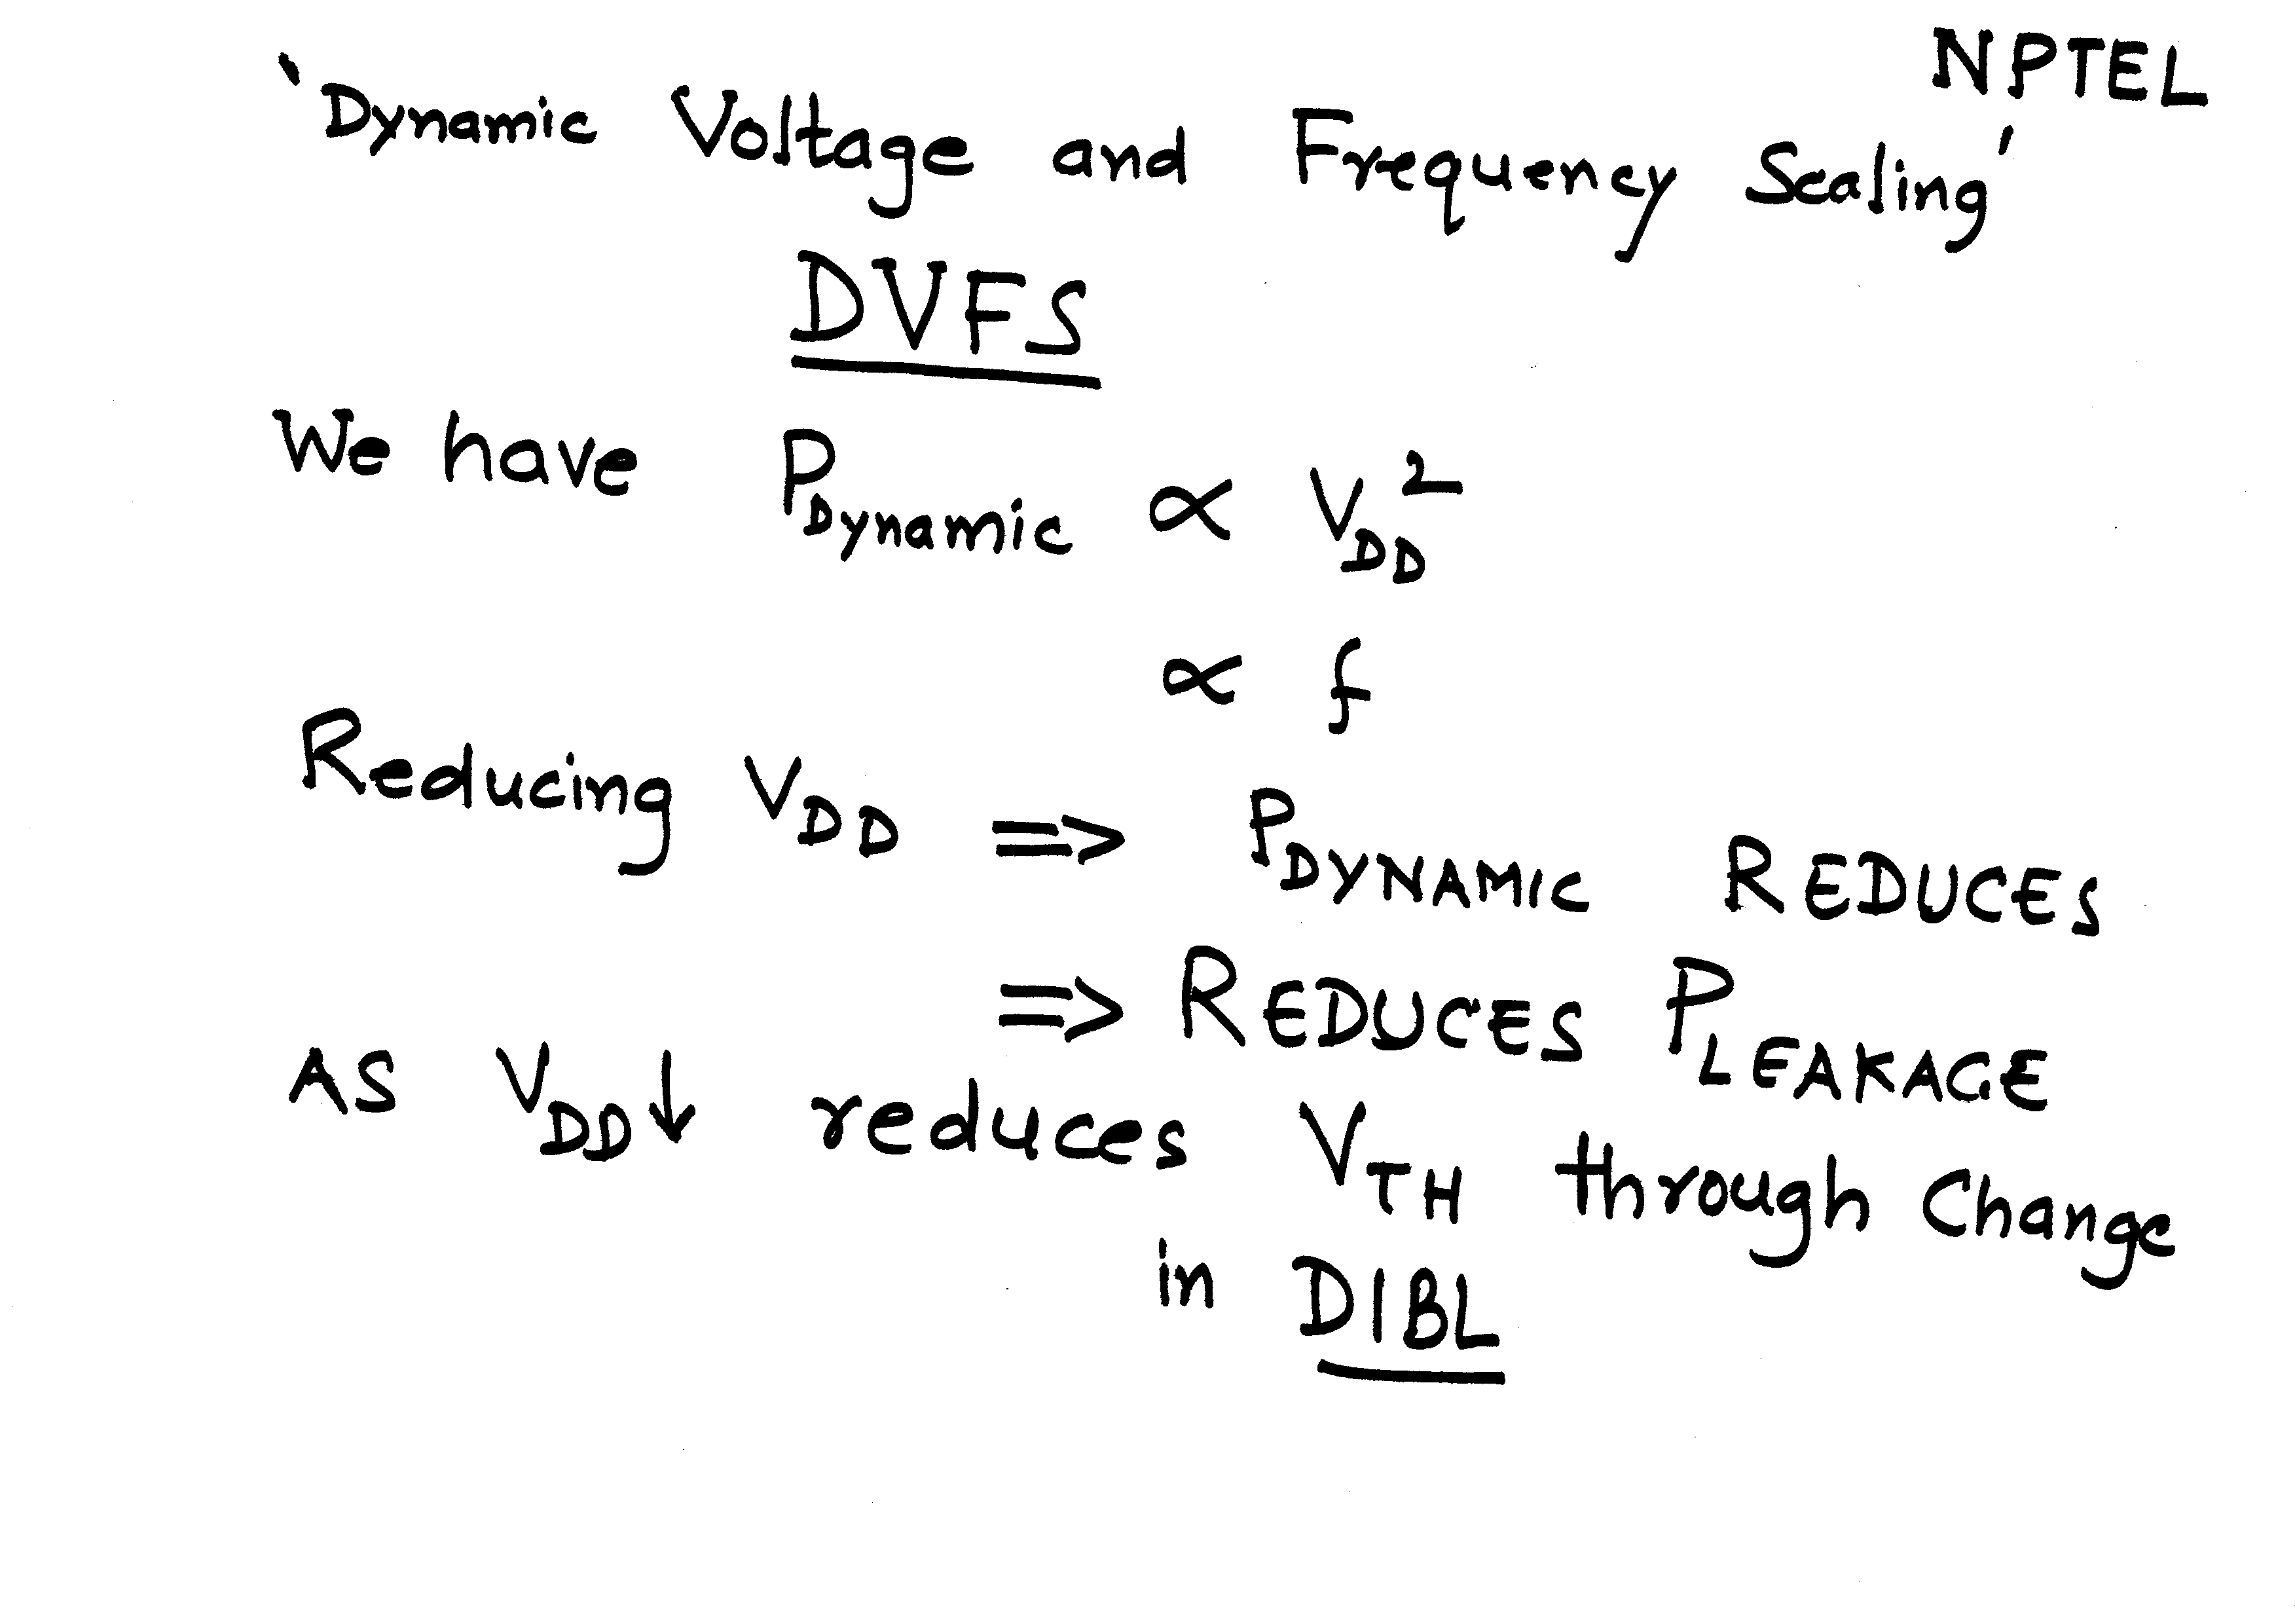 NPTEL
'Dynamic Voltage and Frequency Scaling'
DVFS
We have P_Dynamic ∝ V_DD^2
∝ f
Reducing V_DD => P_DYNAMIC REDUCES
=> REDUCES P_LEAKAGE
AS V_DD↓ reduces V_TH through Change
in DIBL